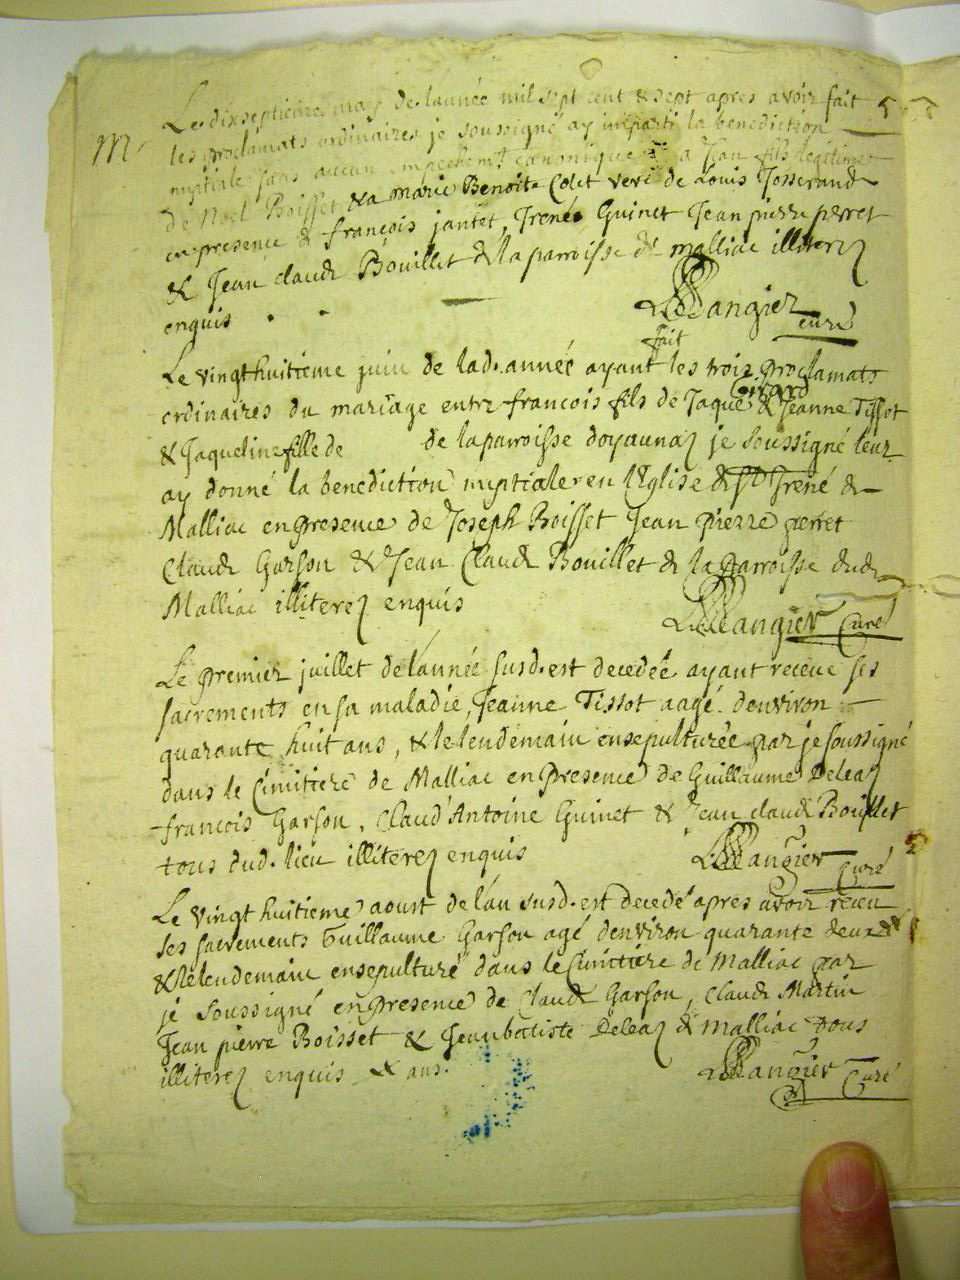 M
Le dixseptieme may de lannée mil sept cent & sept apres avoir fait
les proclamats ordinaires je soussigné ay imparti la benediction
nuptiale sans aucun empechemt canonique a Jean fils legitime
de Noel Boisset & a Marie Benoite Colet veve de Louis Josserand
en presence de françois jantet, Irené Guinet Jean pierre perret
& Jean claude Bouillet de la parroisse de malliac illiterez
enquis
Dangier curé
Le vingthuitieme juin de lad. année ayant fait les trois proclamats
ordinaires du mariage entre francois fils de Jaque Girard & Jeanne Tissot
& Jaqueline fille de de la parroisse doyaunaz je soussigné leur
ay donné la benediction nuptiale en l'Eglise de St Irené de
Malliac en presence de Joseph Boisset Jean pierre perret
Claude Garson & Jean Claude Bouillet de la parroisse dud
Malliac illiterez enquis
Dangier Curé
Le premier juillet de lannée susd. est decedée ayant receue ses
sacrements en sa maladie, Jeanne Tissot aagé denviron
quarante huit ans, & le lendemain ensepulturée par je soussigné
dans le Cimitiere de Malliac en presence de Guillaume Deleaz
francois Garson, Claud'Antoine Guinet & Jean claude Bouillet
tous dud. lieu illiterez enquis
Dangier Curé
Le vingt huitieme aoust de lan susd. est decedé apres avoir receu
ses sacrements Guillaume Garson agé denviron quarante deux
& le lendemain ensepulturé dans le Cimitiere de Malliac par
je soussigné en presence de Claude Garson, Claude Martin
Jean pierre Boisset & Jeanbatiste Deleaz de Malliac tous
illiterez enquis & ans.
Dangier Curé